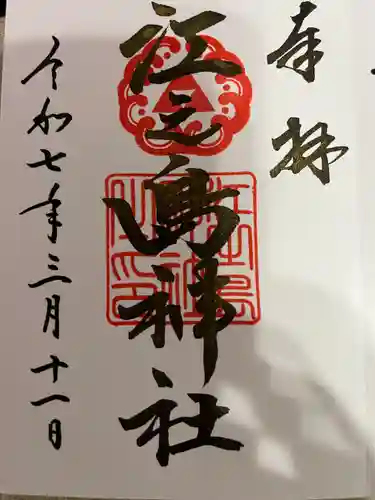 奉拝
江之島神社
令和七年三月十一日